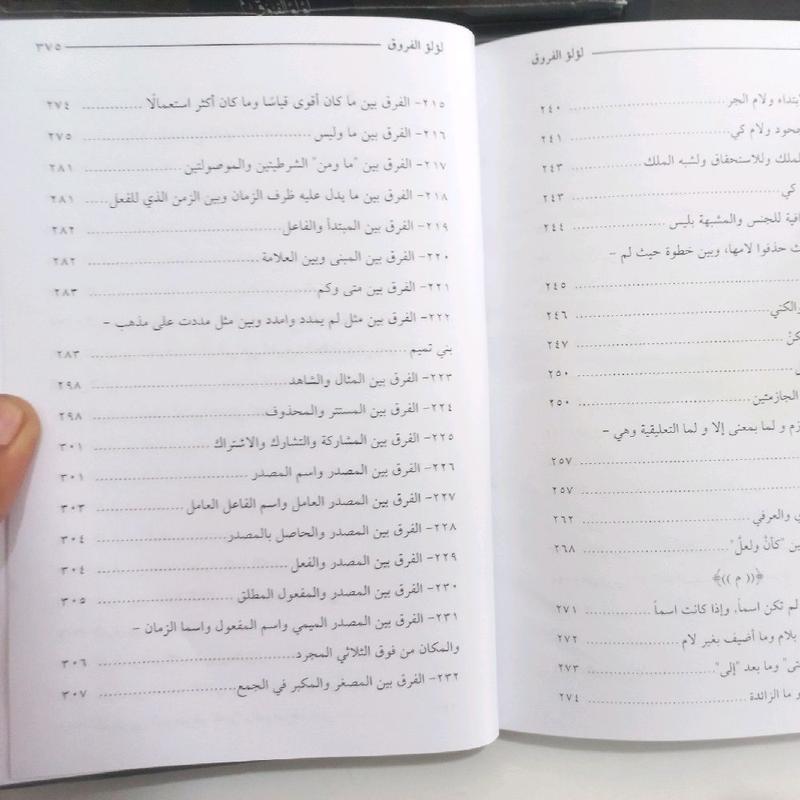 لؤلؤ الفروق
لؤلؤ الفروق
بتداء ولام الجر ٢٤٠
جحود ولام كي ٢٤١
الملك وللاستحقاق ولشبه الملك ٢٤٣
كي ٢٤٣
افية للجنس والمشبهة بليس ٢٤٤
ث حذفوا لامها، وبين خطوة حيث لم –
٢٤٥
والكني ٢٤٦
كنْ ٢٤٧
٢٥٠
الجازمتين ٢٥٠
زم و لما بمعنى إلا و لما التعليقية وهي –
٢٥٧
٢٥٧
ي والعرفي ٢٦٢
ين "كأنْ ولعلّ" ٢٦٨
﴿(( م ))﴾
لم تكن اسماً، وإذا كانت اسماً ٢٧١
بلام وما أضيف بغير لام ٢٧٢
تى" وما بعد "إلى" ٢٧٣
و ما الزائدة ٢٧٤
لؤلؤ الفروق ٣٧٥
٢١٥– الفرق بين ما كان أقوى قياسًا وما كان أكثر استعمالًا ٢٧٤
٢١٦– الفرق بين ما وليس ٢٧٥
٢١٧– الفرق بين "ما ومن" الشرطيتين والموصولتين ٢٨١
٢١٨– الفرق بين ما يدل عليه ظرف الزمان وبين الزمن الذي للفعل ٢٨١
٢١٩– الفرق بين المبتدأ والفاعل ٢٨٢
٢٢٠– الفرق بين المبنى وبين العلامة ٢٨٢
٢٢١– الفرق بين متى وكم ٢٨٣
٢٢٢– الفرق بين مثل لم يمدد وامدد وبين مثل مددت على مذهب –
بني تميم ٢٨٣
٢٢٣– الفرق بين المثال والشاهد ٢٩٨
٢٢٤– الفرق بين المستتر والمحذوف ٢٩٨
٢٢٥– الفرق بين المشاركة والتشارك والاشتراك ٣٠١
٢٢٦– الفرق بين المصدر واسم المصدر ٣٠١
٢٢٧– الفرق بين المصدر العامل واسم الفاعل العامل ٣٠٣
٢٢٨– الفرق بين المصدر والحاصل بالمصدر ٣٠٤
٢٢٩– الفرق بين المصدر والفعل ٣٠٤
٢٣٠– الفرق بين المصدر والمفعول المطلق ٣٠٥
٢٣١– الفرق بين المصدر الميمي واسم المفعول واسما الزمان –
والمكان من فوق الثلاثي المجرد ٣٠٦
٢٣٢– الفرق بين المصغر والمكبر في الجمع ٣٠٧